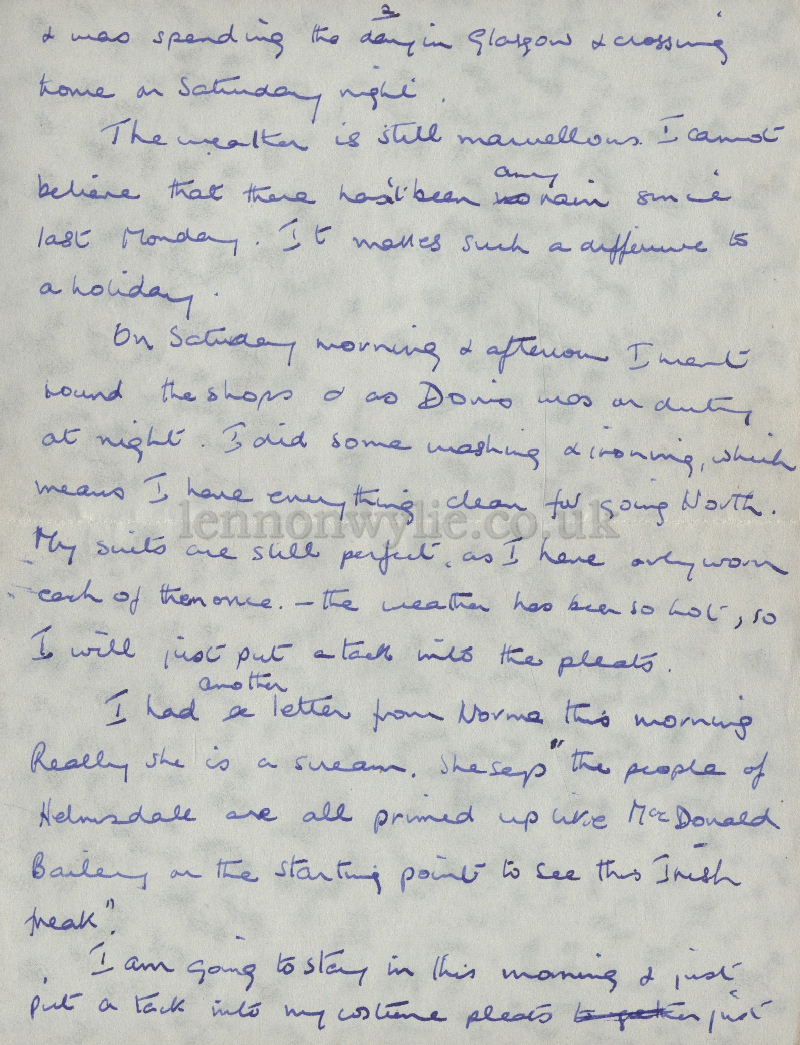 2
& was spending the day in Glasgow & crossing
home on Saturday night.
The weather is still marvellous. I cannot
believe that there hasn't been any no rain since
last Monday. It makes such a difference to
a holiday.
On Saturday morning & afternoon I went
round the shops & as Doris was on duty
at night. I did some washing & ironing, which
means I have everything clean for going North.
lennonwylie.co.uk
My suits are still perfect, as I have only worn
each of them once. - the weather has been so hot, so
I will just put a tack into the pleats.
another
I had a letter from Norma this morning
Really she is a scream. She says "the people of
Helmsdale are all primed up like MacDonald
Bailey on the starting point to see this Irish
freak".
I am going to stay in this morning & just
put a tack into my costume pleats to get just